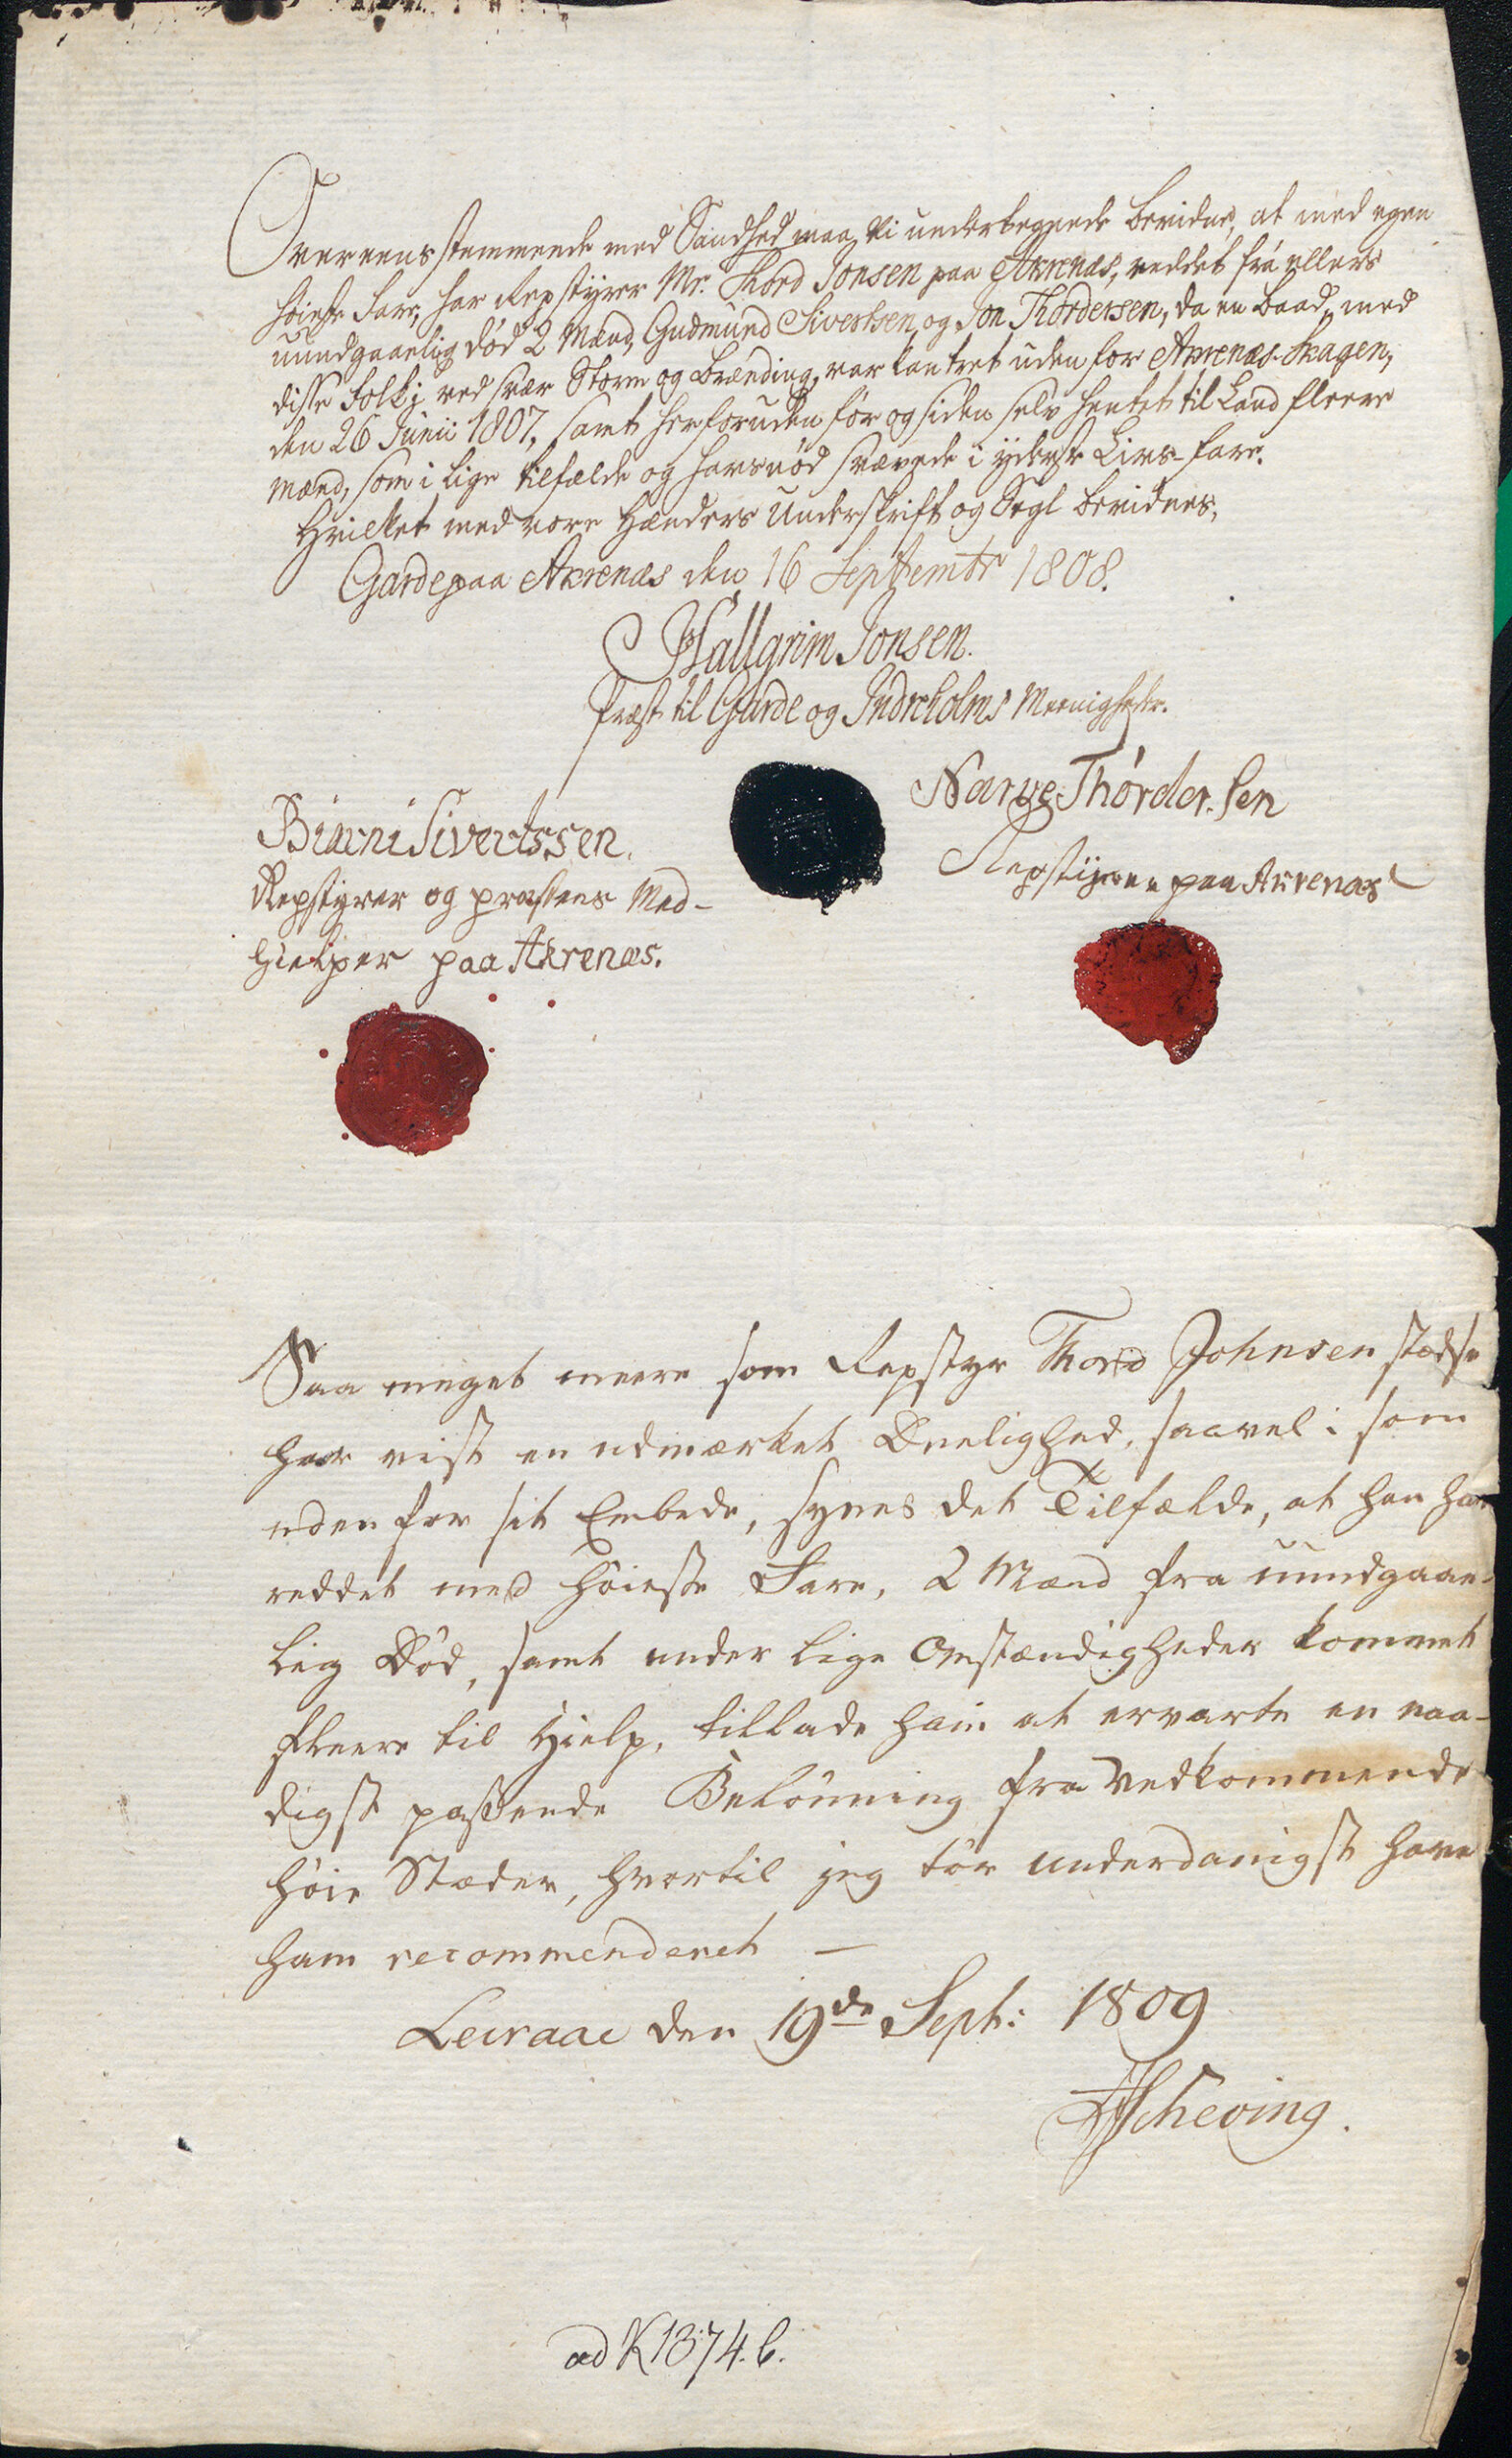 Overeensstemmende med Sandhed maa Vi undertegnede bevidne, at med egen
høieste Fare, har Repstyrer Mr. Thord Jonsen paa Akrenæs, reddet frá ellers
uundgaaelig Død 2 Mænd, Gudmund Sivertsen og Jon Thordersen, da en Baad, med
disse Folk i ved svær Storm og Brænding, var kantret uden for Akrenæs-Skagen,
den 26 Junii 1807, samt herforuden før og siden selv hentet til Land fleere
Mænd, som i lige tilfælde og havsnød svævede i yderste Livs-fare.
Hvilket med vore Hænders Underskrift og Segl bevidnes.
Garde paa Akrenæs den 16 Septembr 1808.
Hallgrim Jonsen.
Præst til Garde og Indreholms Meenigheder.
Narve Thórder.sen
Repstyrer paa Akrenæs
Biarni Sivertssen.
Repstyrer og præstens Med-
hielper paa Akrenæs.
Saa meget meere som Repstyr Thord Johnsen stedse
har vist en udmærket Duelighed, saavel i som
uden for sit Embede, synes det Tilfælde, at han har
reddet med høieste Fare, 2 Mænd fra uundgaae-
lig Død, samt under lige Omstændigheder kommet
fleere til Hielp, tillade ham at ervarte en naa-
digst passende Belønning fra Vedkommende
høie Stæder, hvortil jeg tør underdanigst have
ham recommenderet —
Leiraae den 19de Sept: 1809
Scheving.
ad K 1374. b.